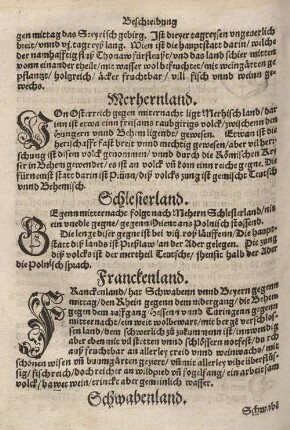 Beschreibung
gen mittag das Steyrisch gebirg. Ist dreyer tagreysen vngeuerlich
breit/vnnd vj. tagreysz lang. Wien ist die hauptstatt darin/welche
der namhafftig flusz Thonaw fürfleuszt/vnd das land schier mitten
von einander theilt/mit wasser wol befeuchtet/mit weingärten ge
pflantzt/holtzreich/äcker fruchtbar/vill fisch vnnd weinn ge-
wechs.
Merhernland.
VOn Österreich gegen mitternacht lige Merhisch land/dar
inn ist etwa ein freisams raubgirigs volck/zwischenn den
Hungern vnnd Behem ligende/gewesen. Etwan ist die
herschafft fast breit vnnd mechtig gewesen/aber vil herr
schung ist disem volck genommen/vnnd durch die Römischen Key
ser in Behem gewendet/es ist an volck vñ korn ein reiche gegne. Die
fürnemst statt darin ist Prünn/disz volcks zung ist gemischt Teutsch
vnnd Behemisch.
Schlesierland.
GEgenn mitternacht folgt nach Mehern Schlesierland/nit
ein vnedle gegne/gegenn Orient ans Polnisch stossend.
Die lenge diser gegne ist bei
statt disz lands ist Preszlaw/an der Ader gelegen. Die zung
disz volcks ist der mertheil Teutsch/jhenset halb der Ader
die Polnisch sprach.
Franckenland.
FRanckenland/hat Schwabenn vnnd Beyern gegenn
mittag/den Rhein gegenn dem nidergang/die Behem
gegen dem auffgang/Hessenn vnnd Türingenn gegenn
mitternacht/ein weit wolbewart/mit bergē verschlos-
sen land/dem schwerlich zů zukommenn ist/inwendig
aber eben mit vil stetten vnnd schlössern
ausz fruchtbar an allerley treid vnnd weinwachs/mit
schönen wisen vnd baumgarten geziert/von allerley vihe überflüs-
sig/fischreich/doch reicher an wildpred vñ fogelfang/ein arbeitsam
volck/bawet wein/trinckt aber gemeinlich wasser.
Schwabenland.
Schwabē